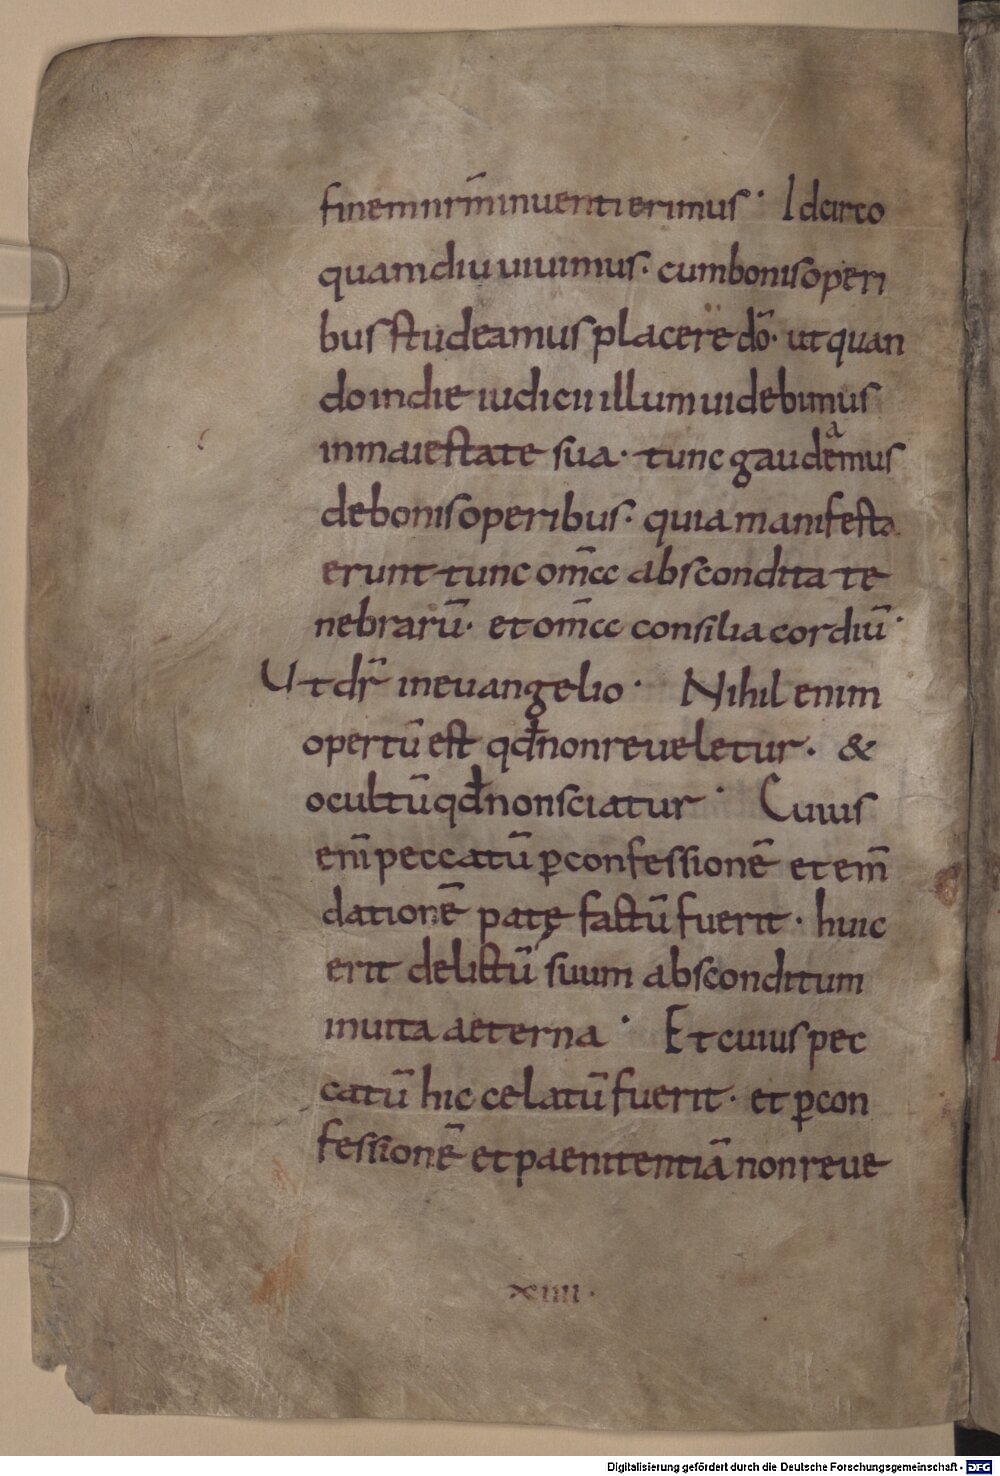 finem nr̄m inuenti erimus· Idcirco
quamdiu uiuimus· cum bonis operi
bus studeamus placere dō· ut quan
do in die iudicii illum uidebimus
in maiestate sua· tunc gaudeamus
de bonis operibus· quia manifesta
erunt tunc om̄cc abscondita te
nebrarū· et om̄cc consilia cordiū·
Ut dr̄ in euangelio· Nihil enim
opertū est qđ non reueletur· &
ocultū qđ non sciatur· Cuius
eni̅ peccatū ꝑ confessionē et em̄
dationē patę factū fuerit· huic
erit delictū suum absconditum
in uita aeterna· Et cuius pec
catū hic celatū fuerit· et ꝑ con
fessionē et paenitentiā non reue
xiiii·
Digitalisierung gefördert durch die Deutsche Forschungsgemeinschaft - DFG